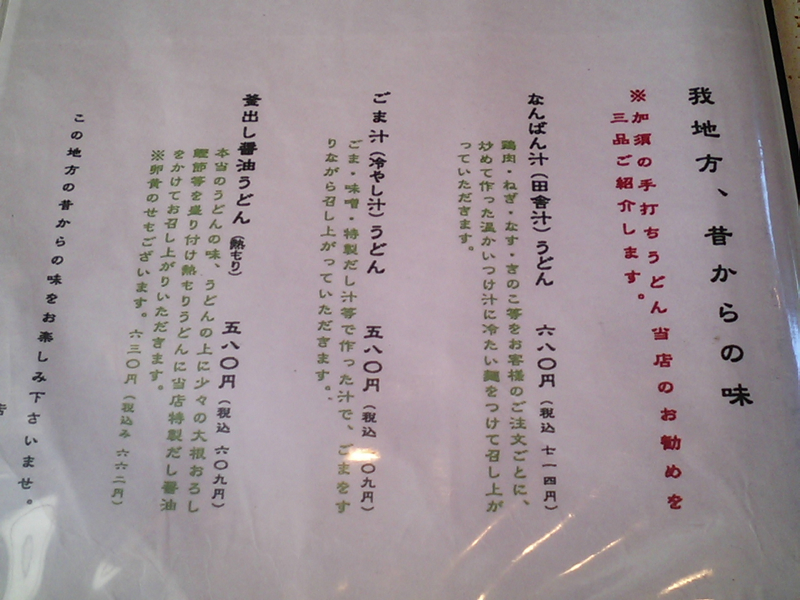 我地方、昔からの味
※加須の手打ちうどん当店のお勧めを
三品ご紹介します。
なんばん汁(田舎汁)うどん 六八〇円(税込 七一四円)
鶏肉・ねぎ・なす・きのこ等をお客様のご注文ごとに、
炒めて作った温かいつけ汁に冷たい麺をつけて召し上が
っていただきます。
ごま汁(冷やし汁)うどん 五八〇円(税込 六〇九円)
ごま・味噌・特製だし汁等で作った汁で、ごまをす
りながら召し上がっていただきます。
釜出し醤油うどん(熱もり) 五八〇円(税込 六〇九円)
本当のうどんの味、うどんの上に少々の大根おろし
鰹節等を盛り付け熱もりうどんに当店特製だし醤油
をかけてお召し上がりいただきます。
※卵黄のせもございます。六三〇円(税込み 六六二円)
この地方の昔からの味をお楽しみ下さいませ。